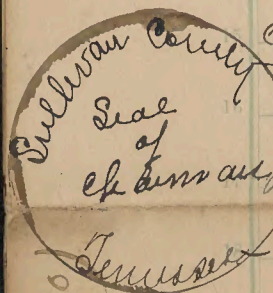 Sullivan County
Seal
of
Chairman
Tennessee